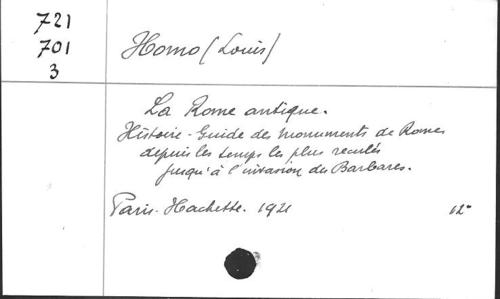 721
701
3
Homo (Louis)
La Rome antique.
Histoire-Guide des monuments de Rome
depuis les temps les plus reculés
jusqu'à l'invasion des Barbares.
Paris-Hachette. 1921 12°